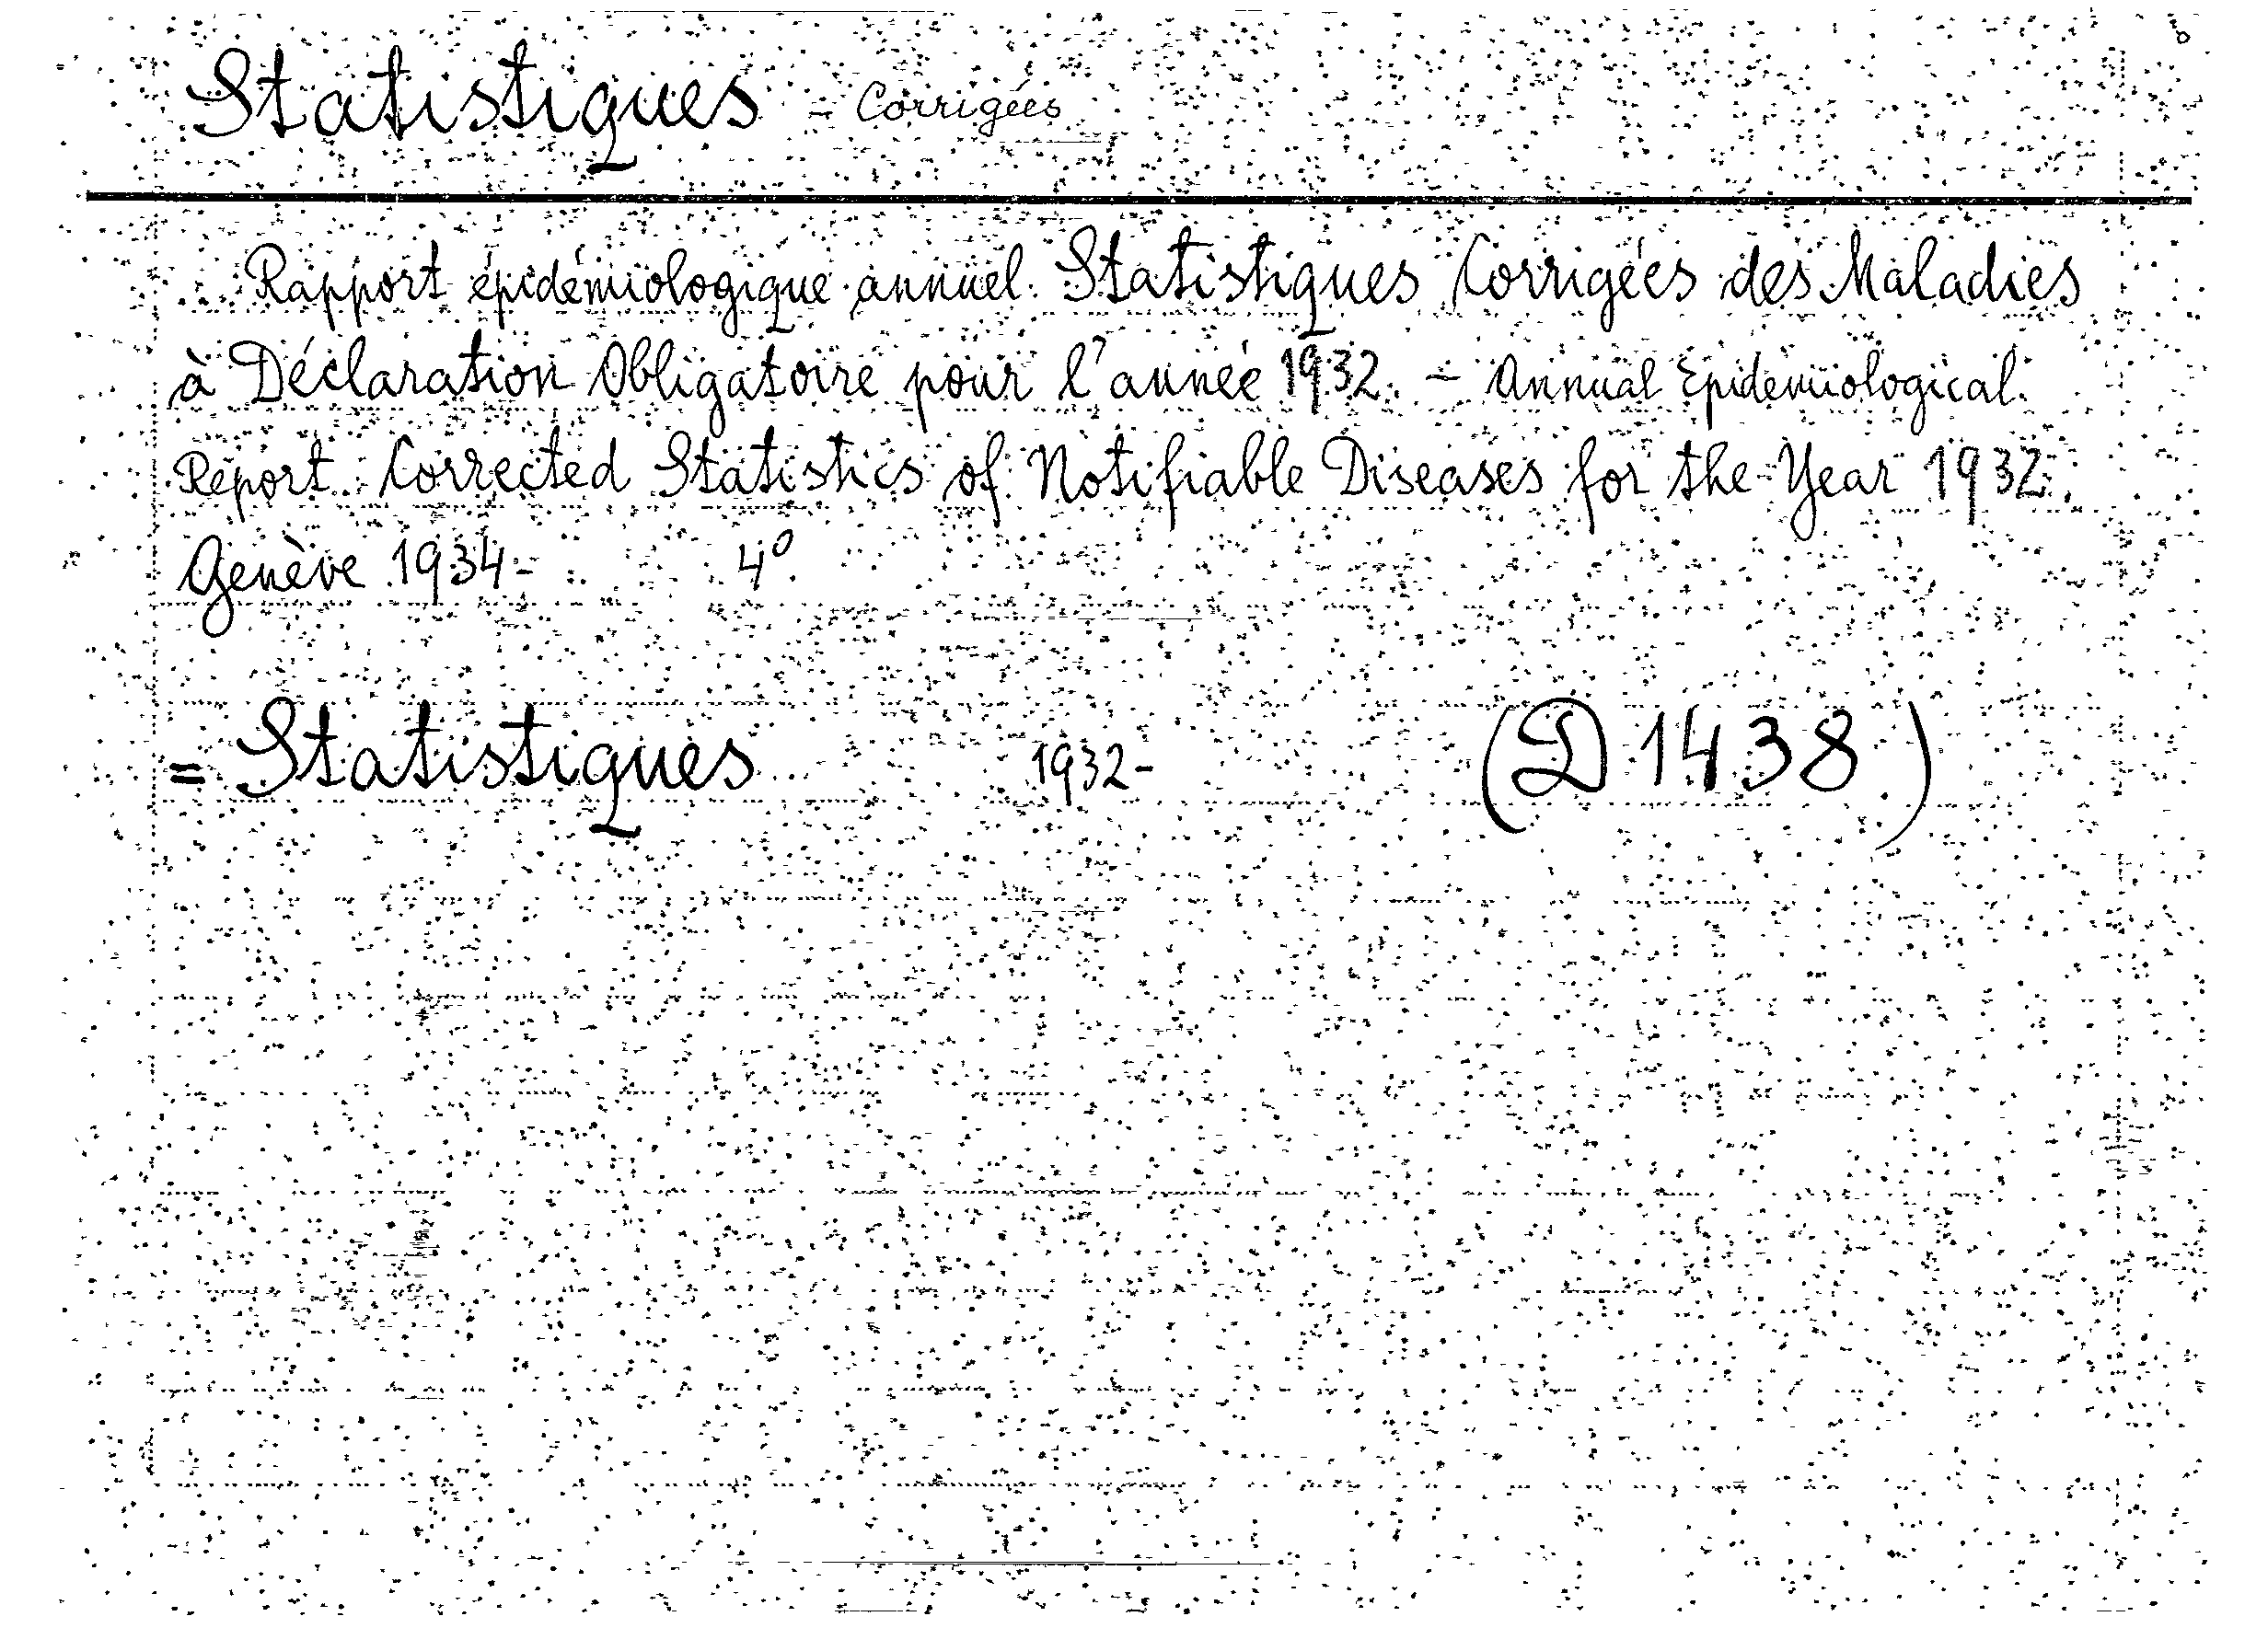 Statistiques - Corrigées
Rapport épidémiologique annuel. Statistiques Corrigées des Maladies
à Déclaration Obligatoire pour l'année 1932. - Annual Epidemiological
Report Corrected Statistics of Notifiable Diseases for the Year 1932.
Genève 1934- 4°
= Statistiques 1932- (D 1438)